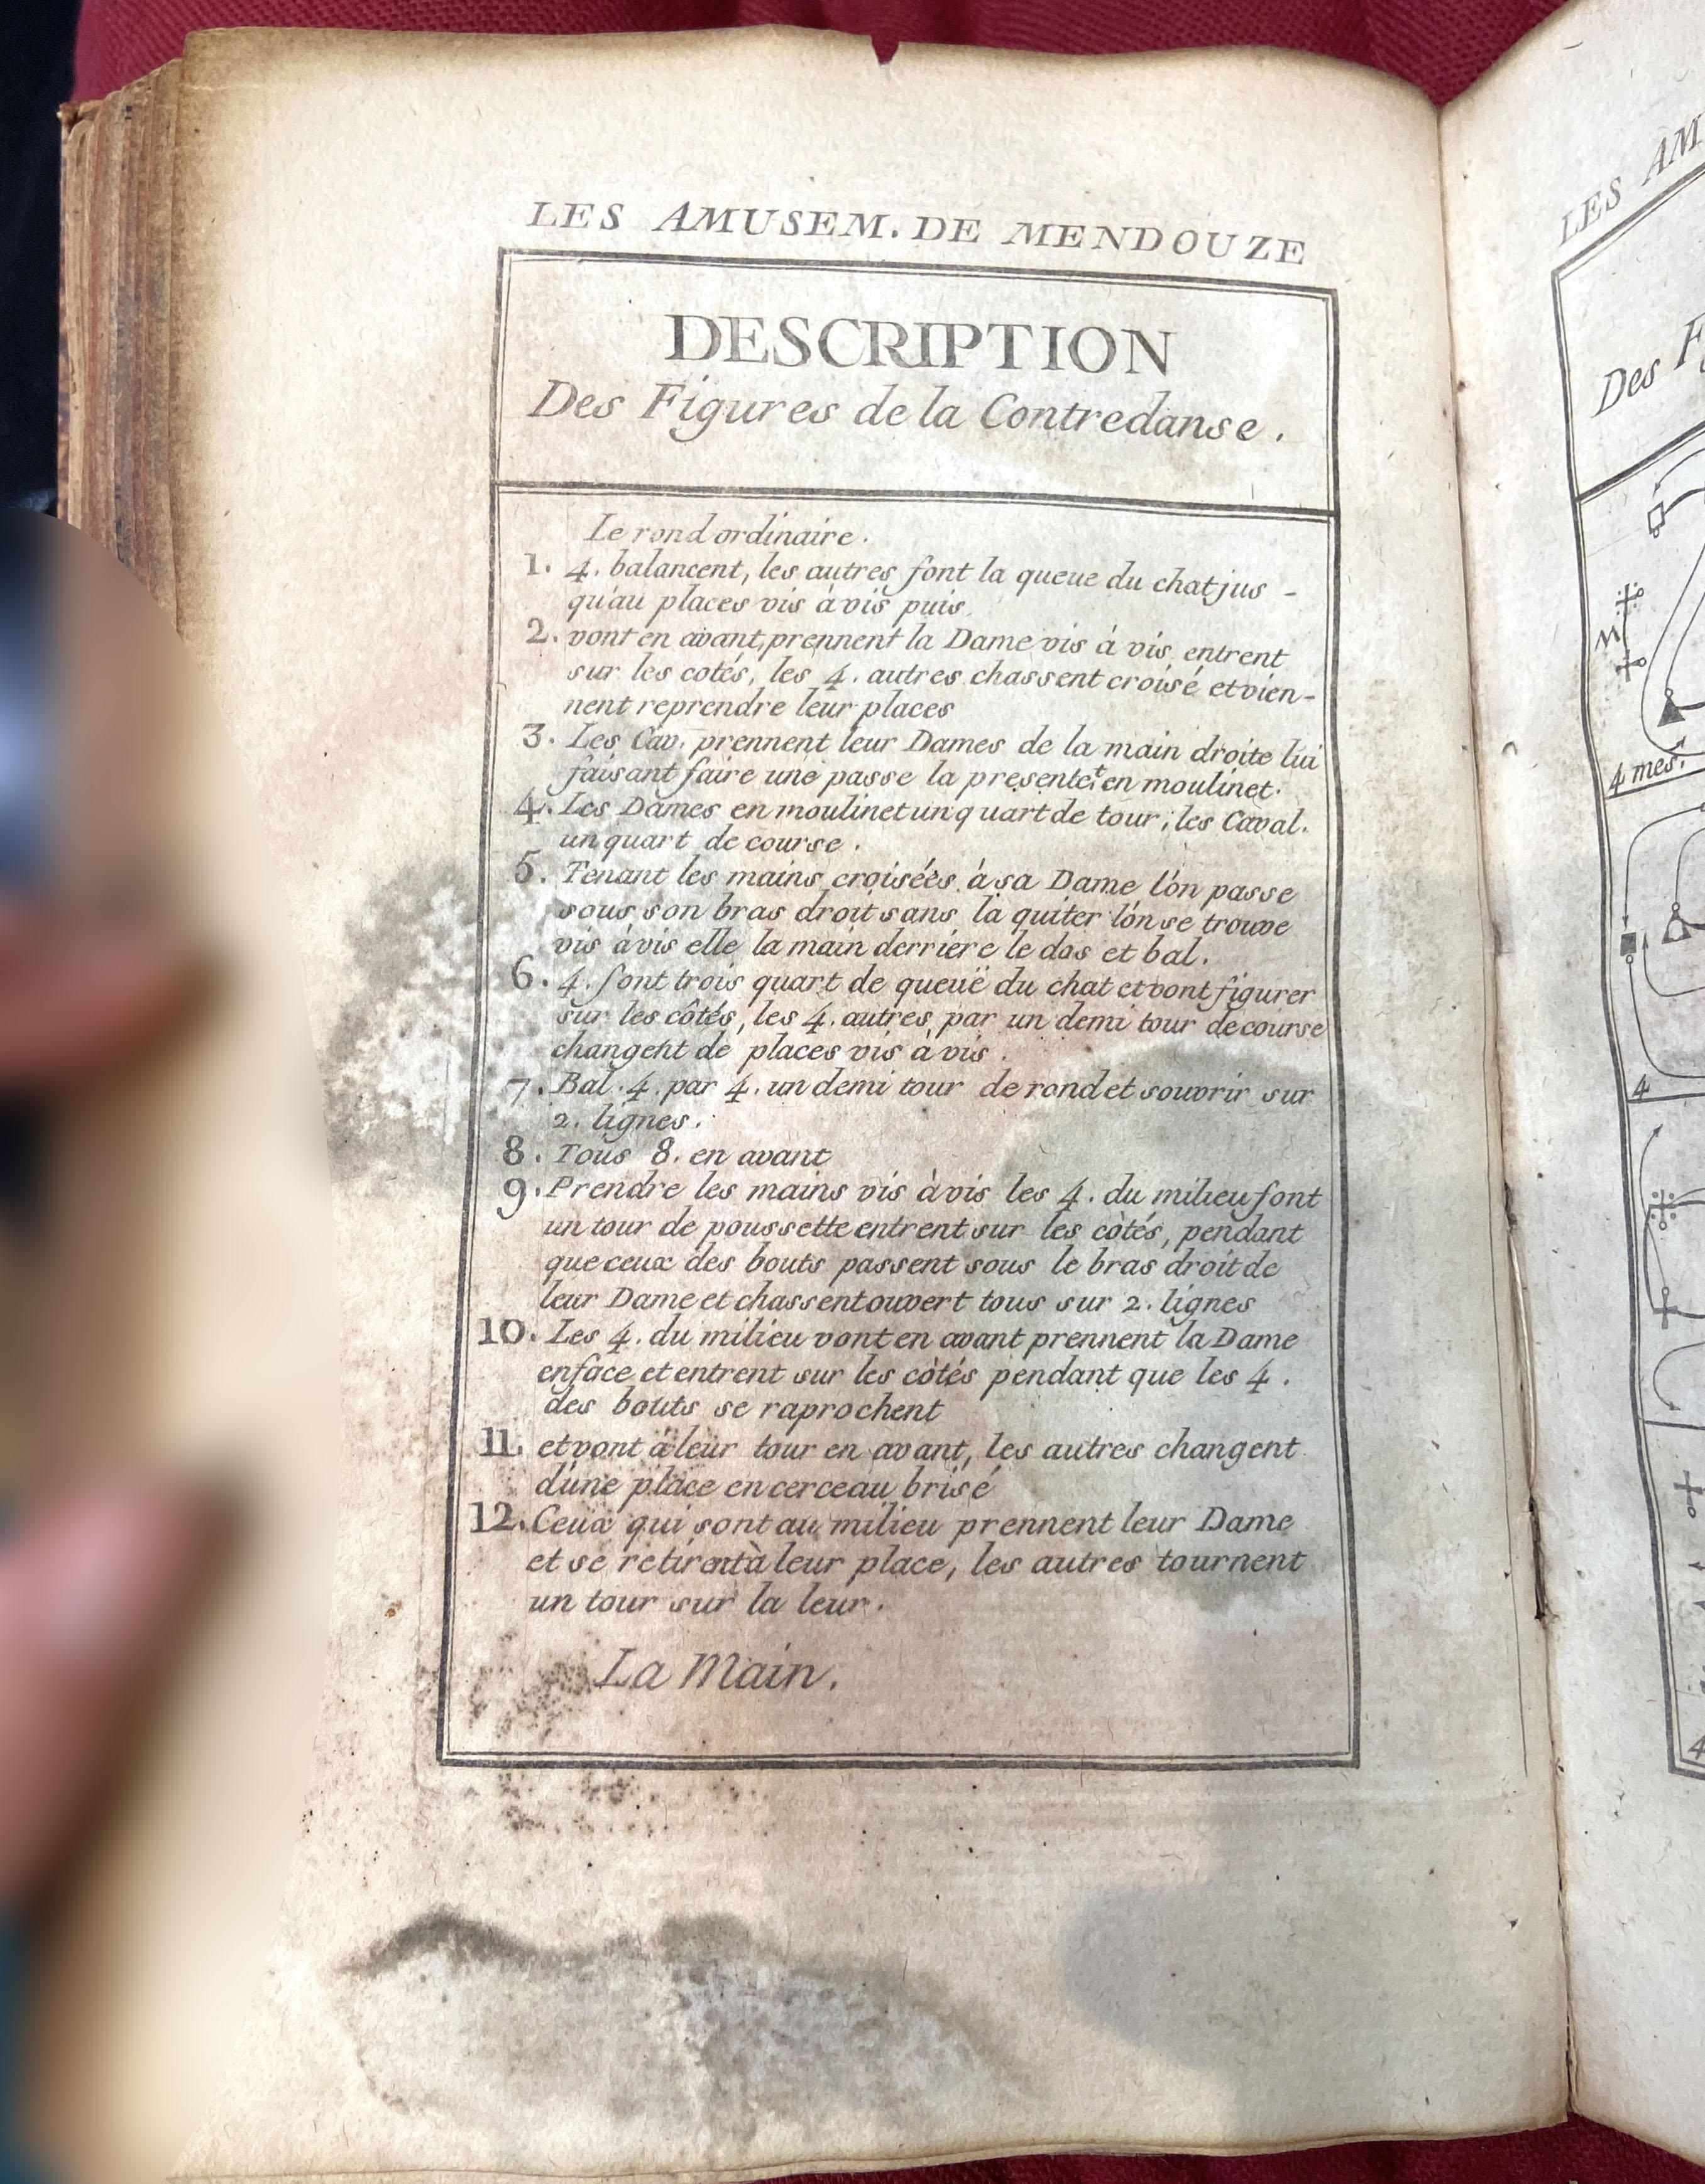 LES AMUSEM. DE MENDOUZE
DESCRIPTION
Des Figures de la Contredanse.
Le rond ordinaire.
1. 4. balancent, les autres font la queue du chat jus-
qu'au places vis à vis puis
2. vont en avant, prennent la Dame vis à vis, entrent
sur les cotés, les 4. autres chassent croisé et vien-
nent reprendre leur places
3. Les Cav. prennent leur Dames de la main droite lui
faisant faire une passe la presente.t en moulinet.
4. Les Dames en moulinet un quart de tour; les Caval.
un quart de course.
5. Tenant les mains croisées à sa Dame l'on passe
sous son bras droit sans la quiter l'on se trouve
vis à vis elle la main derriére le dos et bal.
6. 4. font trois quart de queuë du chat et vont figurer
sur les côtés, les 4. autres par un demi tour de course
changent de places vis à vis.
7. Bal. 4. par 4. un demi tour de rond et souvrir sur
2. lignes.
8. Tous 8. en avant
9. Prendre les mains vis à vis les 4. du milieu font
un tour de poussette entrent sur les còtés, pendant
que ceux des bouts passent sous le bras droit de
leur Dame et chassent ouvert tous sur 2. lignes
10. Les 4. du milieu vont en avant prennent la Dame
enface et entrent sur les còtés pendant que les 4.
des bouts se raprochent
11. et vont à leur tour en avant, les autres changent
d'une place en cerceau brisé
12. Ceux qui sont au milieu prennent leur Dame
et se retirent à leur place, les autres tournent
un tour sur la leur.
La Main.
LES AM
Des F
4 mes.
4
4